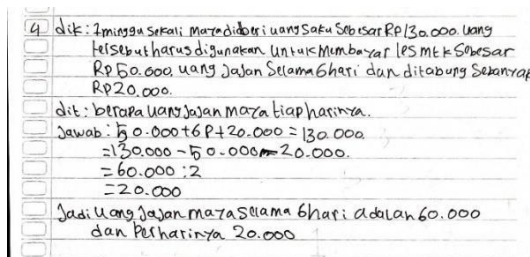 4 dik: 1 minggu sekali maya diberi uang saku sebesar RP130.000. uang
tersebut harus digunakan untuk membayar les mtk sebesar
RP50.000. uang jajan selama 6 hari dan ditabung sebanyak
RP20.000.
dit: berapa uang jajan maya tiap harinya.
Jawab: 50.000+6P+20.000=130.000
=130.000-50.000-20.000.
=60.000:2
=20.000
Jadi uang jajan maya selama 6 hari adalah 60.000
dan Perharinya 20.000